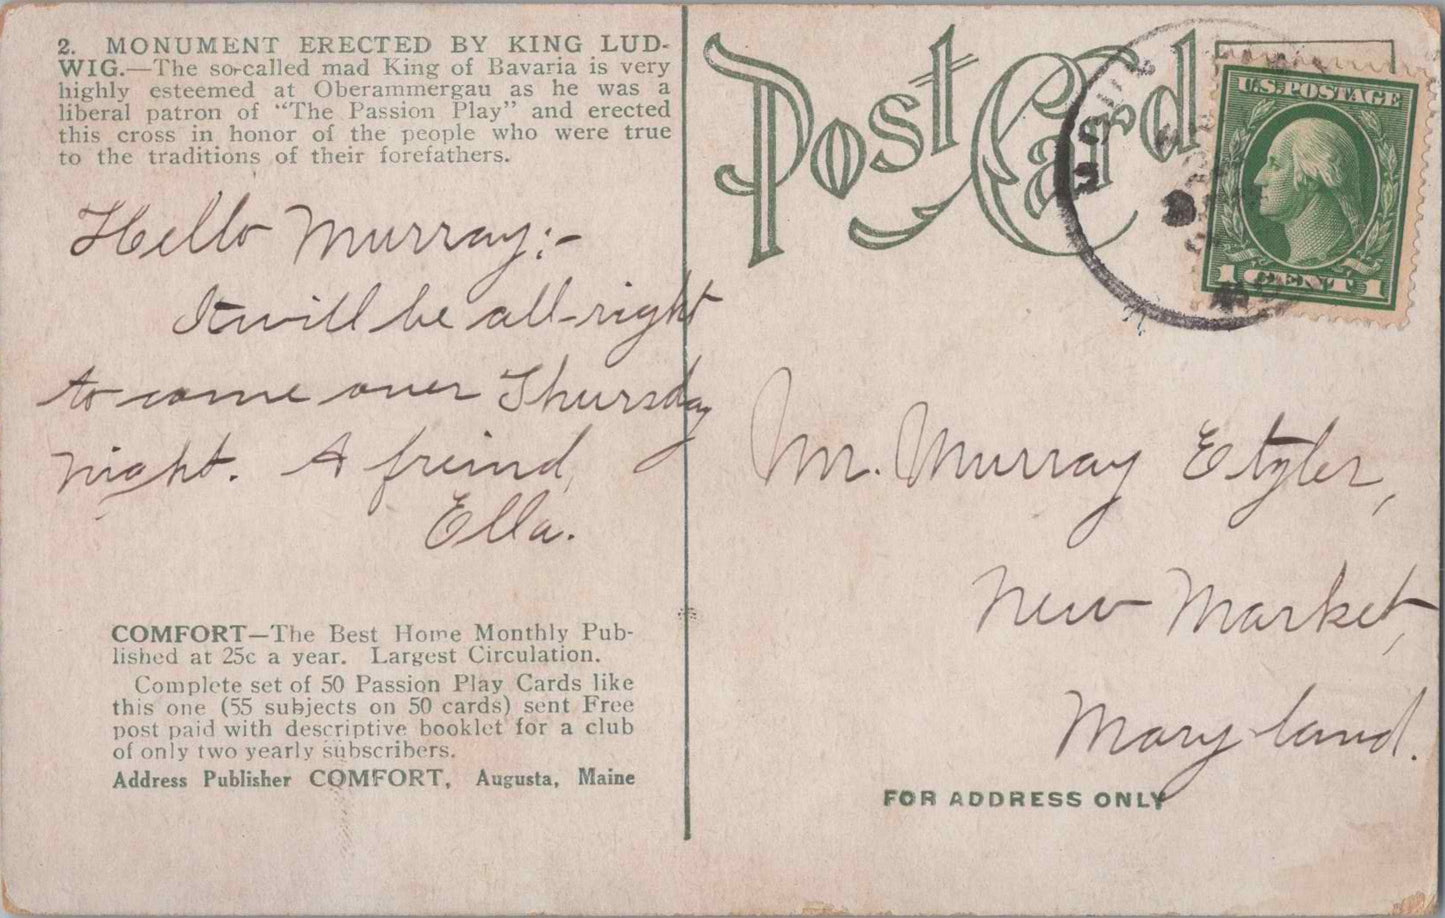 2. MONUMENT ERECTED BY KING LUD-
WIG.—The so-called mad King of Bavaria is very
highly esteemed at Oberammergau as he was a
liberal patron of "The Passion Play" and erected
this cross in honor of the people who were true
to the traditions of their forefathers.
Hello Murray:-
It will be all-right
to come over Thursday
night. A freind,
Ella.
COMFORT—The Best Home Monthly Pub-
lished at 25c a year. Largest Circulation.
Complete set of 50 Passion Play Cards like
this one (55 subjects on 50 cards) sent Free
post paid with descriptive booklet for a club
of only two yearly subscribers.
Address Publisher COMFORT, Augusta, Maine
Post Card
U.S. POSTAGE
1 CENT 1
Mr. Murray Etzler,
New Market,
Maryland.
FOR ADDRESS ONLY